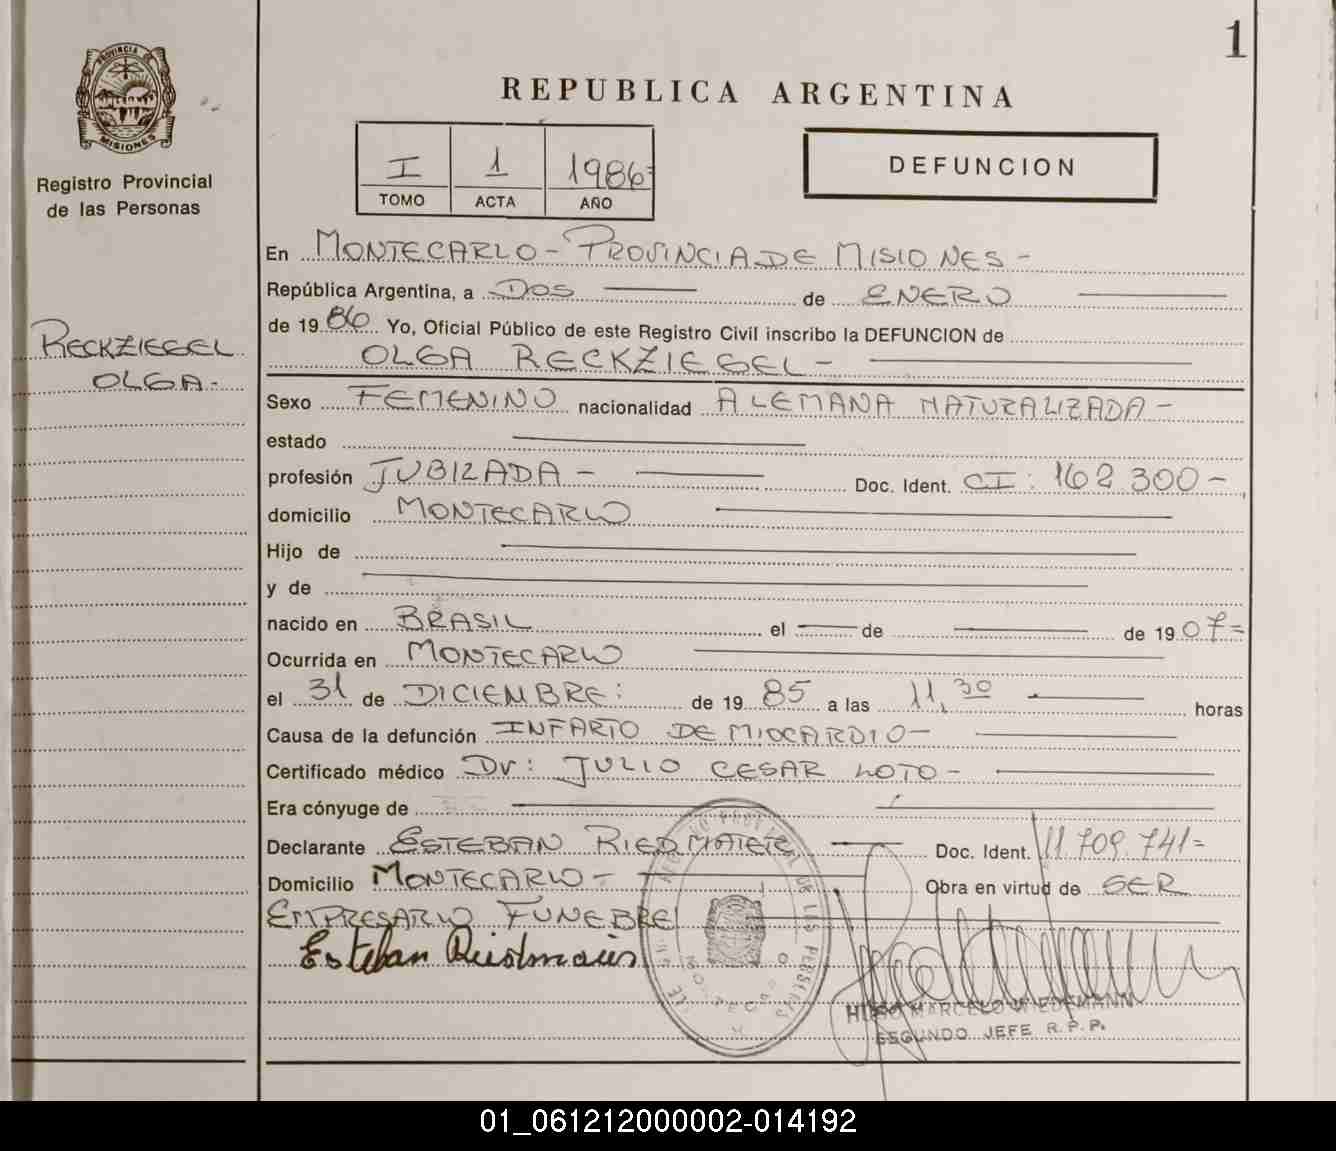 1
PROVINCIA DE
MISIONES
Registro Provincial
de las Personas
RECKZIEGEL
OLGA-
REPUBLICA ARGENTINA
I 1 1986=
TOMO ACTA AÑO
DEFUNCION
En MONTECARLO - PROVINCIA DE MISIONES -
República Argentina, a DOS de ENERO
de 1986 Yo, Oficial Público de este Registro Civil inscribo la DEFUNCION de
OLGA RECKZIEGEL -
Sexo FEMENINO nacionalidad ALEMANA NATURALIZADA -
estado
profesión JUBILADA - Doc. Ident. CI: 162 300 -
domicilio MONTECARLO
Hijo de
y de
nacido en BRASIL el de de 1907=
Ocurrida en MONTECARLO
el 31 de DICIEMBRE: de 1985 a las 11,30 horas
Causa de la defunción INFARTO DE MIOCARDIO -
Certificado médico Dr: JULIO CESAR LOTO -
Era cónyuge de
Declarante ESTEBAN RIEDMAIER Doc. Ident. 11.709.741=
Domicilio MONTECARLO - Obra en virtud de SER
EMPRESARIO FUNEBRE
Esteban
HUGO MARCELO WIEDEMANN
SEGUNDO JEFE R.P.P.
01_061212000002-014192